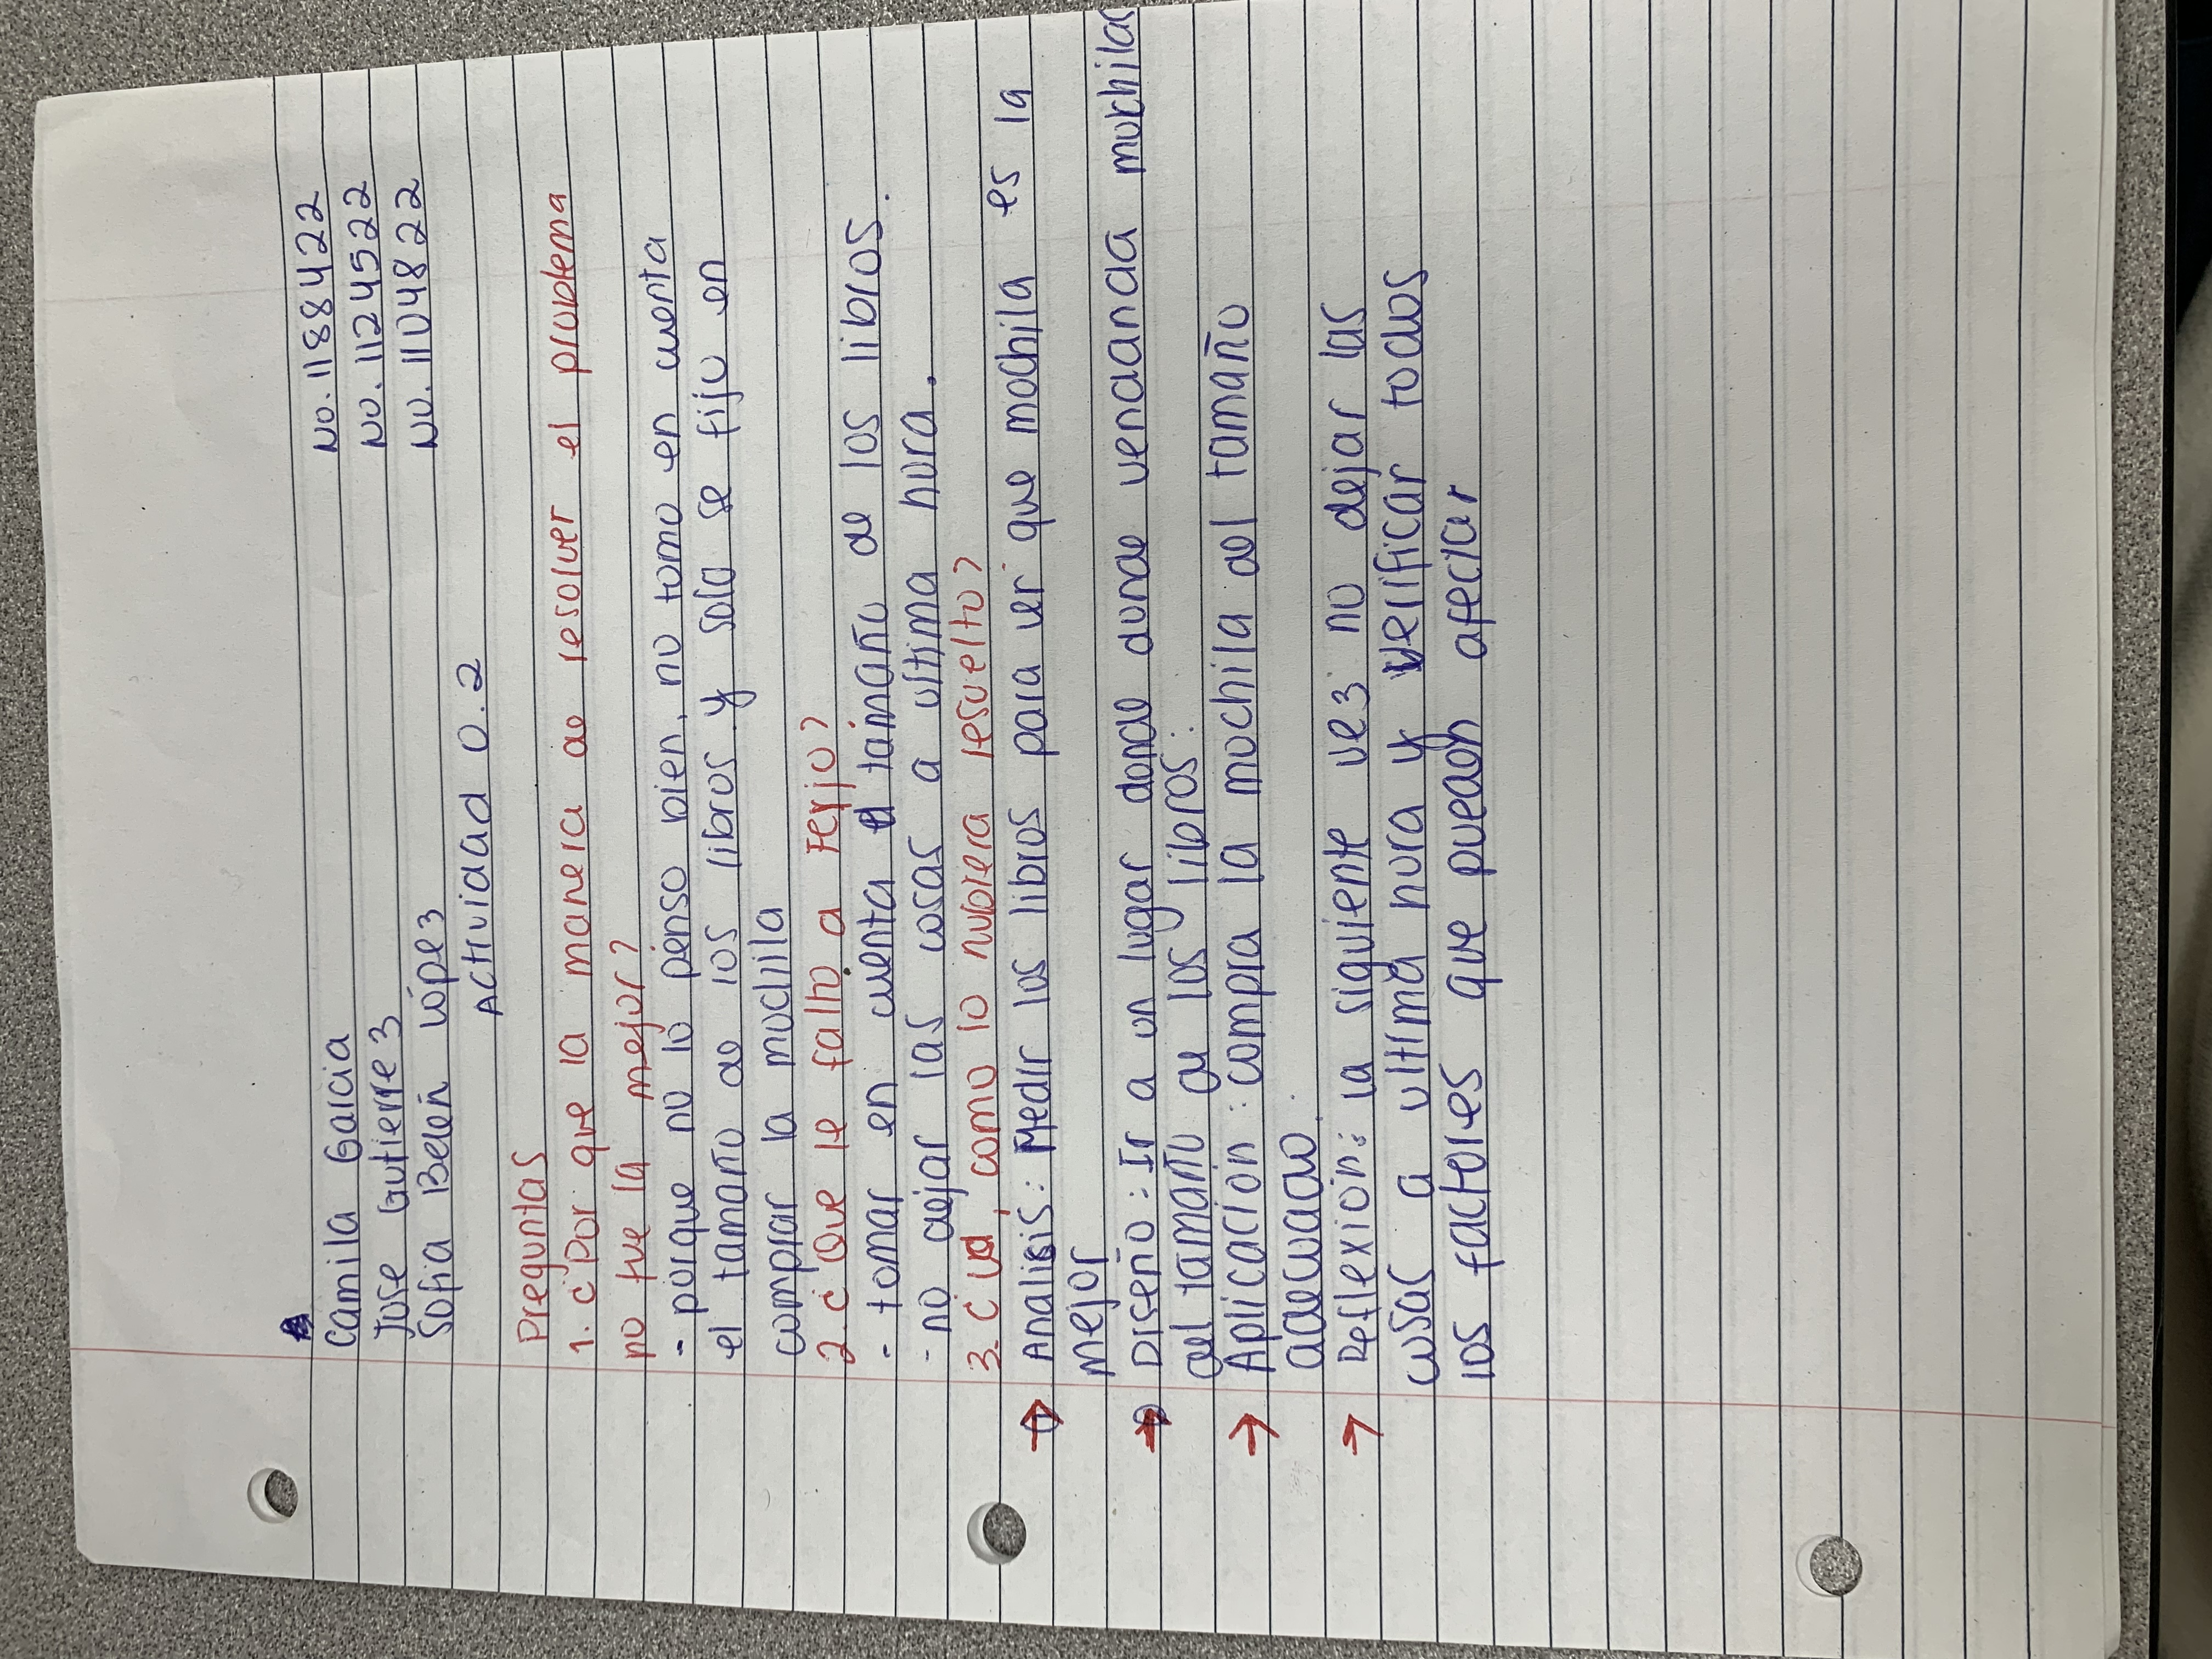 Camila Garcia No. 1188422
Jose Gutierrez No. 1124522
Sofia Belén López No. 1104822
Actividad 0.2
Preguntas
1. ¿Por que la manera de resolver el problema
no fue la mejor?
- porque no lo penso bien, no tomo en cuenta
el tamaño de los libros y solo se fijo en
comprar la mochila
2. ¿Que le falto a Ferjo?
- tomar en cuenta el tamaño de los libros.
- no dejar las cosas a ultima hora.
3. ¿Ud, como lo hubiera resuelto?
→ Analisis: Medir los libros para ver que mochila es la
mejor
→ Diseño: Ir a un lugar donde donde vendanda mochilas
del tamaño de los libros.
→ Aplicación: compra la mochila del tamaño
adecuado.
→ Reflexión: la siguiente vez no dejar las
cosas a ultima hora y verificar todos
los factores que pueden afectar